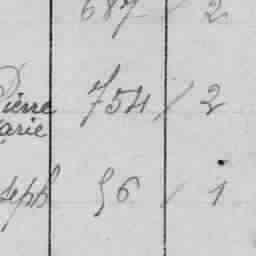 687 / 2
Pierre 754 / 2
Marie
seph 56 / 1